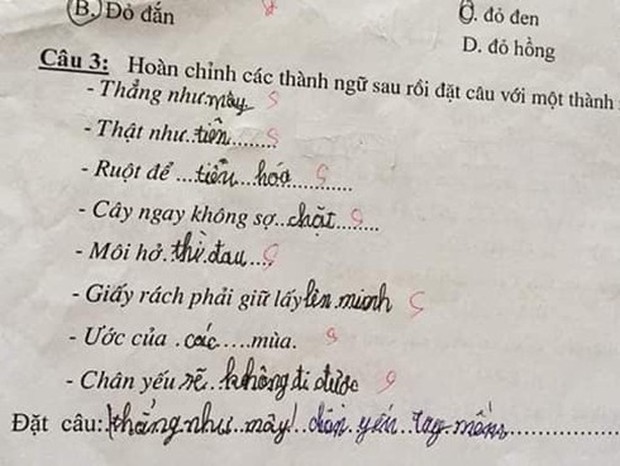 B. Đỏ đắn
C. đỏ đen
D. đỏ hồng
Câu 3: Hoàn chỉnh các thành ngữ sau rồi đặt câu với một thành
- Thẳng như mây
- Thật như..tiền........
- Ruột để ...tiêu...hóa..........
- Cây ngay không sợ..chặt.......
- Môi hở.thì.đau....
- Giấy rách phải giữ lấy lên mình
- Ước của .các....mùa.
- Chân yếu sẽ..không đi được
Đặt câu: thẳng.như..mây chân.yếu..tay.mềm................